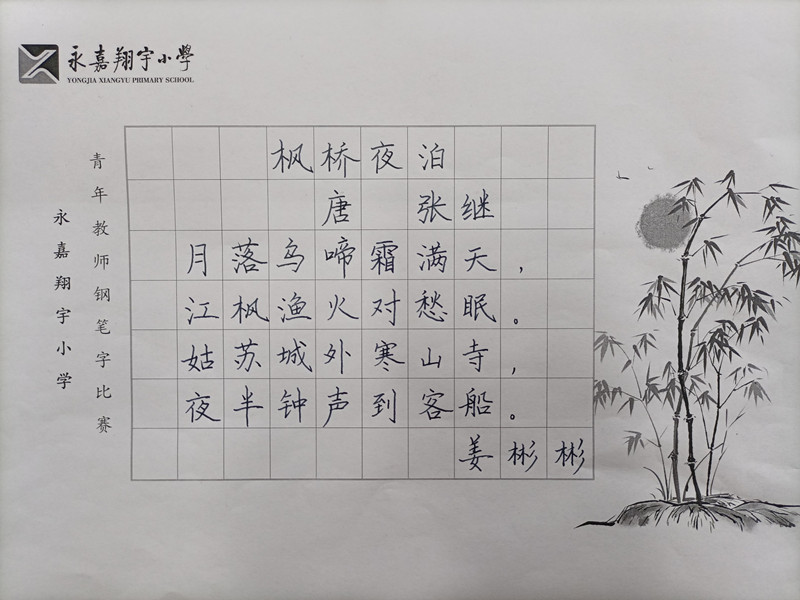 永嘉翔宇小學
YONGJIA XIANGYU PRIMARY SCHOOL
青年教师钢笔字比赛
永嘉翔宇小学
枫桥夜泊
唐 张继
月落乌啼霜满天，
江枫渔火对愁眠。
姑苏城外寒山寺，
夜半钟声到客船。
姜彬彬